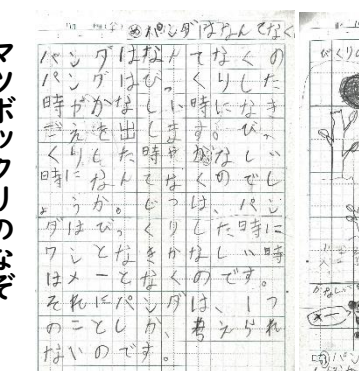 マツボックリのなぞ
パンダはなんてなく
パンダはなんてなくの
パンダはびっくりした
時やかなしい時になき
ごえを出します。びっ
くりした時やかなしい
時になんてなくのでし
ょうか。じつは、パン
ダはびっくりした時に
ワンとなきかなしい時
はメーとなくのです。
それにパンダは、1つ
のことしか、考えられ
ないのです。
びっくり
かなしい
メー